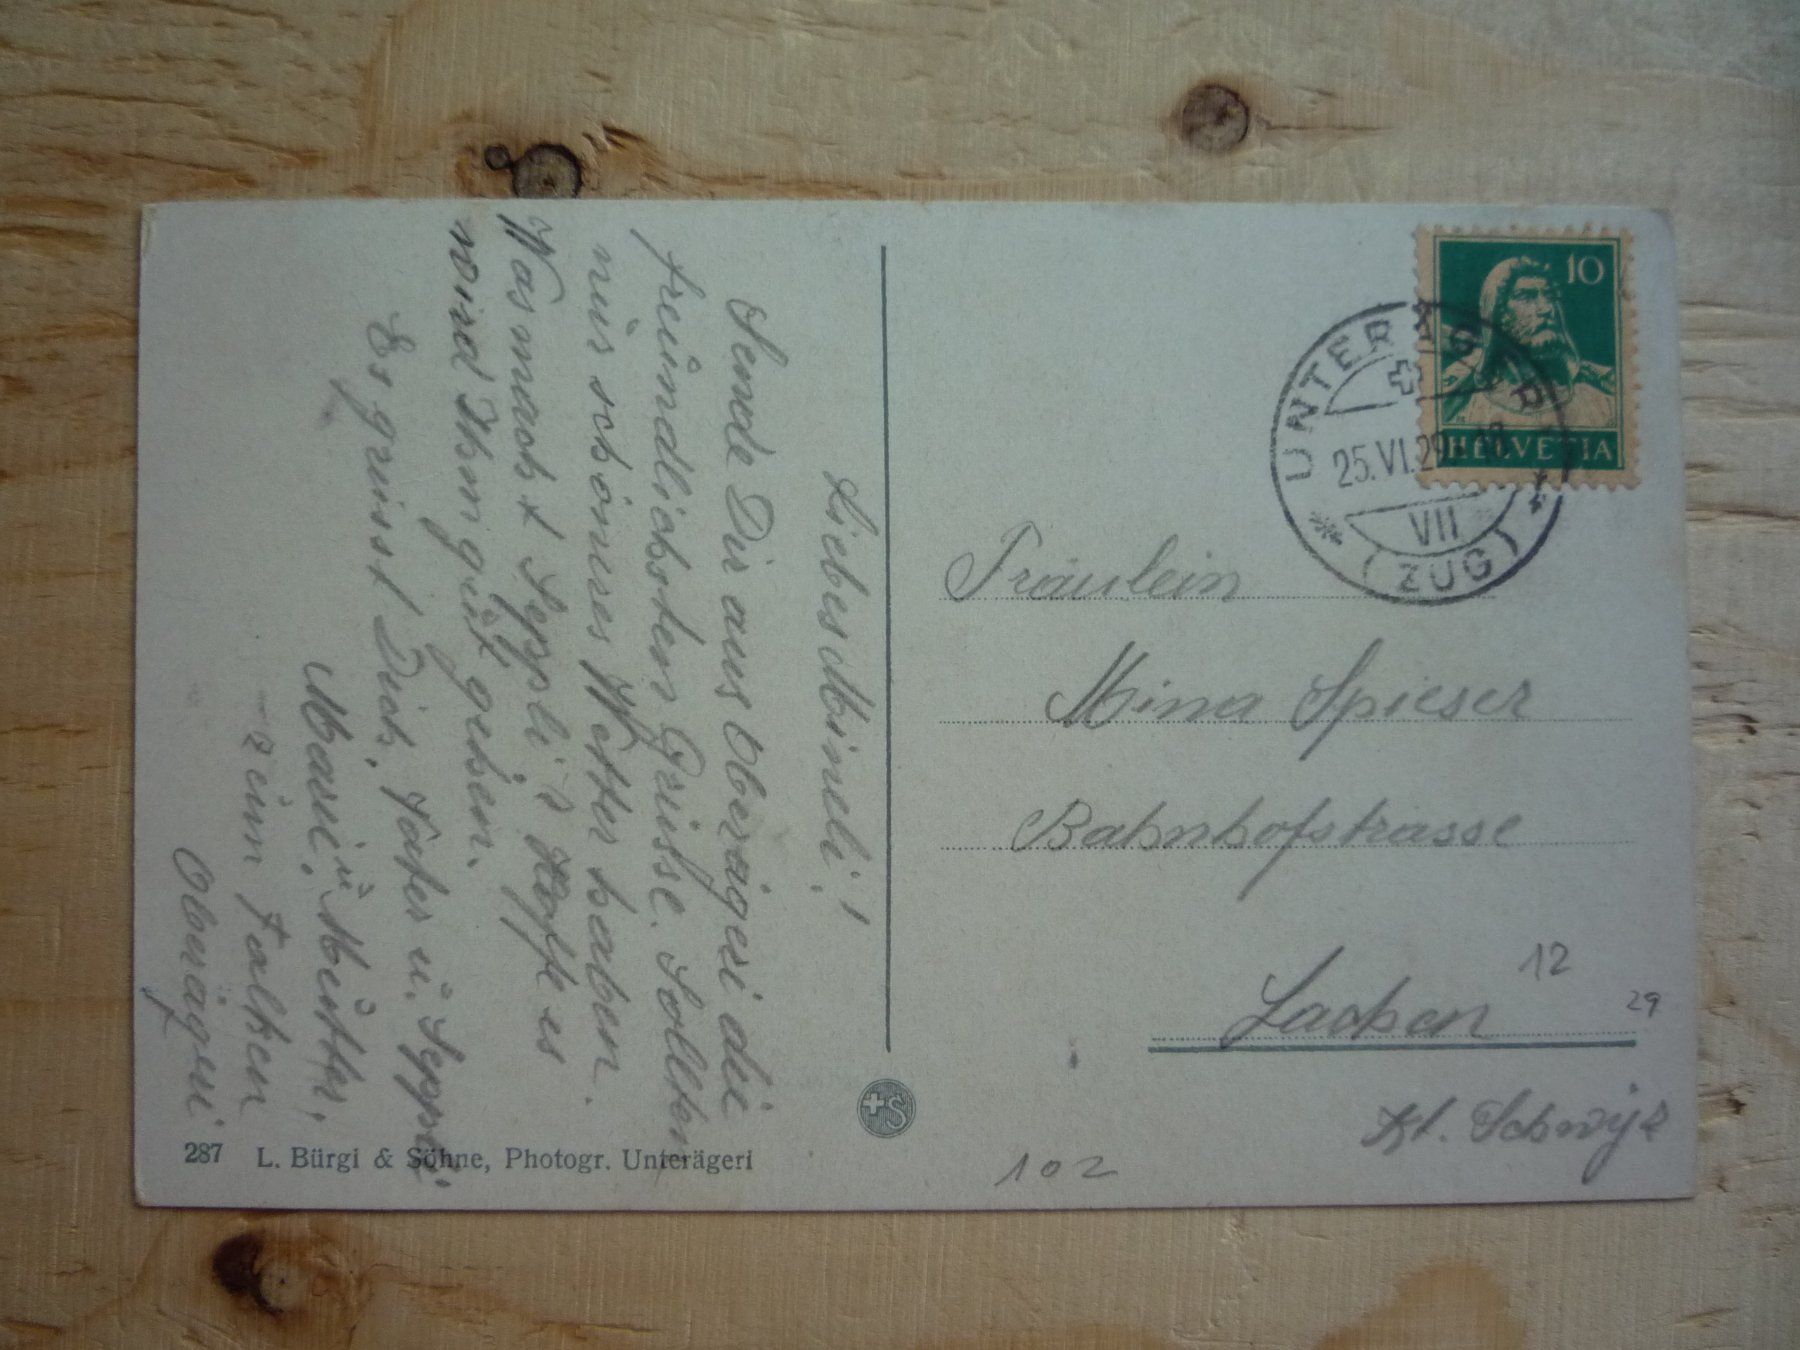 Liebes Mineli!
Sende Dir aus Oberägeri die
freundlichsten Grüsse. Sollten
nur schönes Wetter haben.
Was macht Seppli? Hoffe es
wird Ihm gut gehen.
Es grüsst Dich, Vater u. Seppli.
Marie, u. Mutter,
zum Falken
Oberägeri
287 L. Bürgi & Söhne, Photogr. Unterägeri
10
HELVETIA
UNTERÄGERI
25.VI.29
VII
(ZUG)
Fräulein
Mina Spieser
Bahnhofstrasse
Lachen
12
29
Kt. Schwyz
102
+S